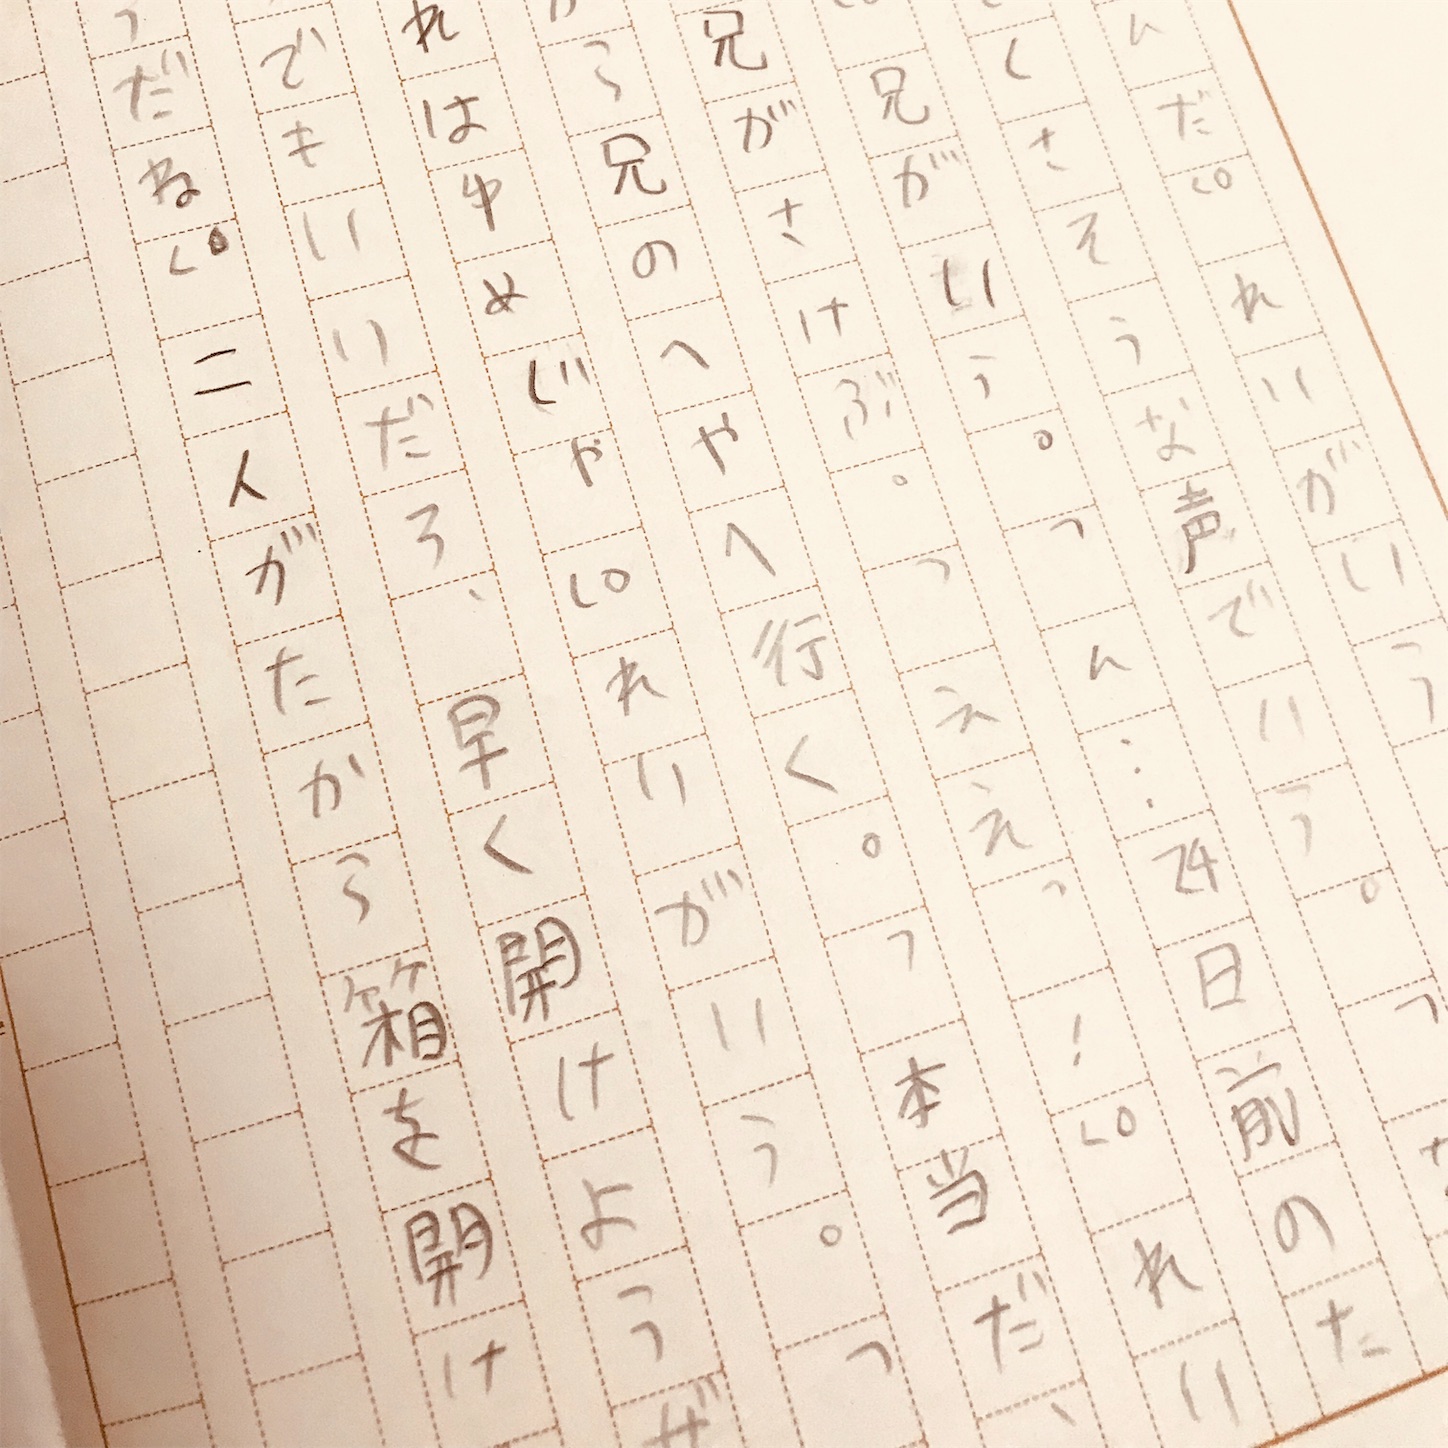 んだ。」れいがいう
くさそうな声でいう。「な
。」兄がいう。「ん…24日前のた
兄がさけぶ。「ええっ！。」れい
から兄のへやへ行く。「本当だ、
れはゆめじゃ。」れいがいう。「
でもいいだろ、早く開けようぜ
うだね。」二人がたから箱を開け